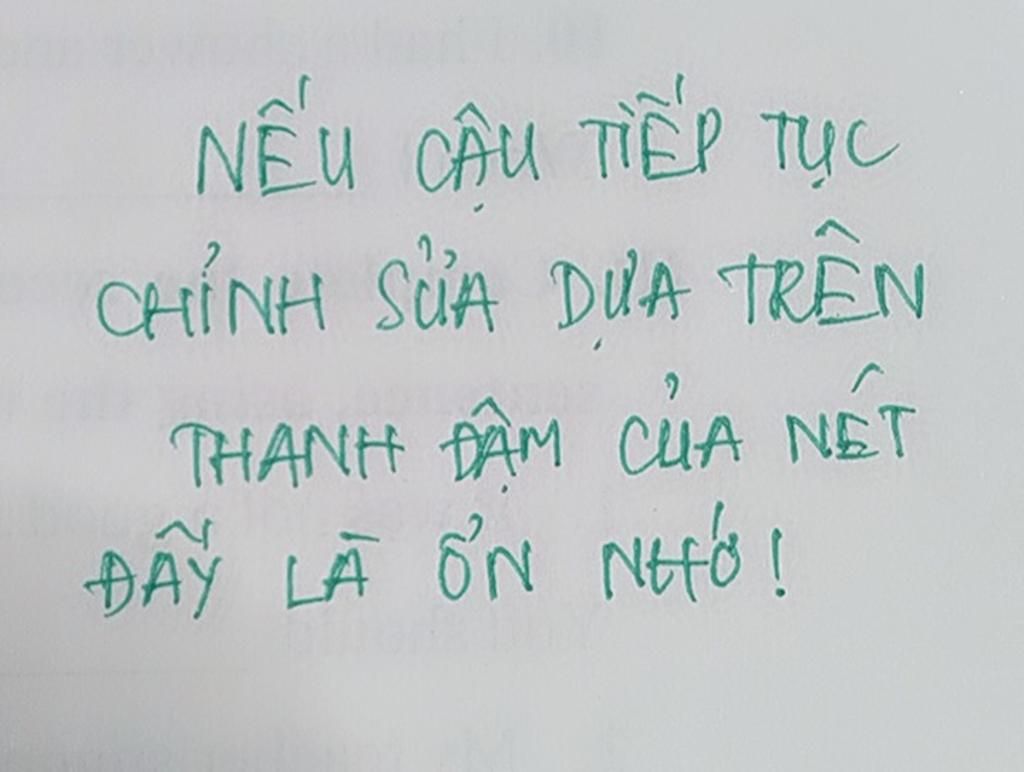 NẾU CẬU TIẾP TỤC
CHỈNH SỬA DỰA TRÊN
THANH ĐẬM CỦA NÉT
ĐẪY LÀ ỔN NHỚ!